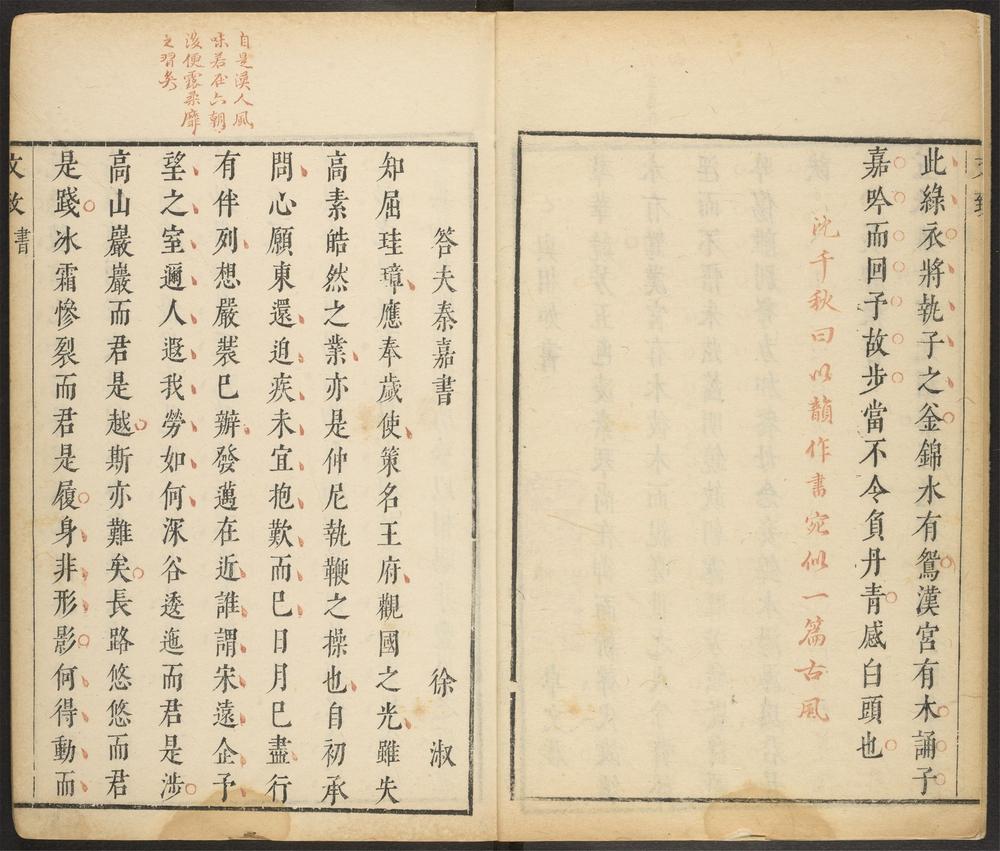 此綠衣將執子之釜錦水有鴛漢宮有木誦子
嘉吟而回予故步當不令負丹青感白頭也
沈千秋曰以韻作書宛似一篇古風
自是漢人風
味若在六朝
後便露柔靡
之習矣
答夫秦嘉書　徐淑
知屈珪璋應奉歲使策名王府觀國之光雖失
高素皓然之業亦是仲尼執鞭之操也自初承
問心願東還迫疾未宜抱歎而巳日月巳盡行
有伴列想嚴裝巳辦發邁在近誰謂宋遠企予
望之室邇人遐我勞如何深谷逶迤而君是涉
高山巖巖而君是越斯亦難矣長路悠悠而君
是踐冰霜慘裂而君是履身非形影何得動而
文致　書